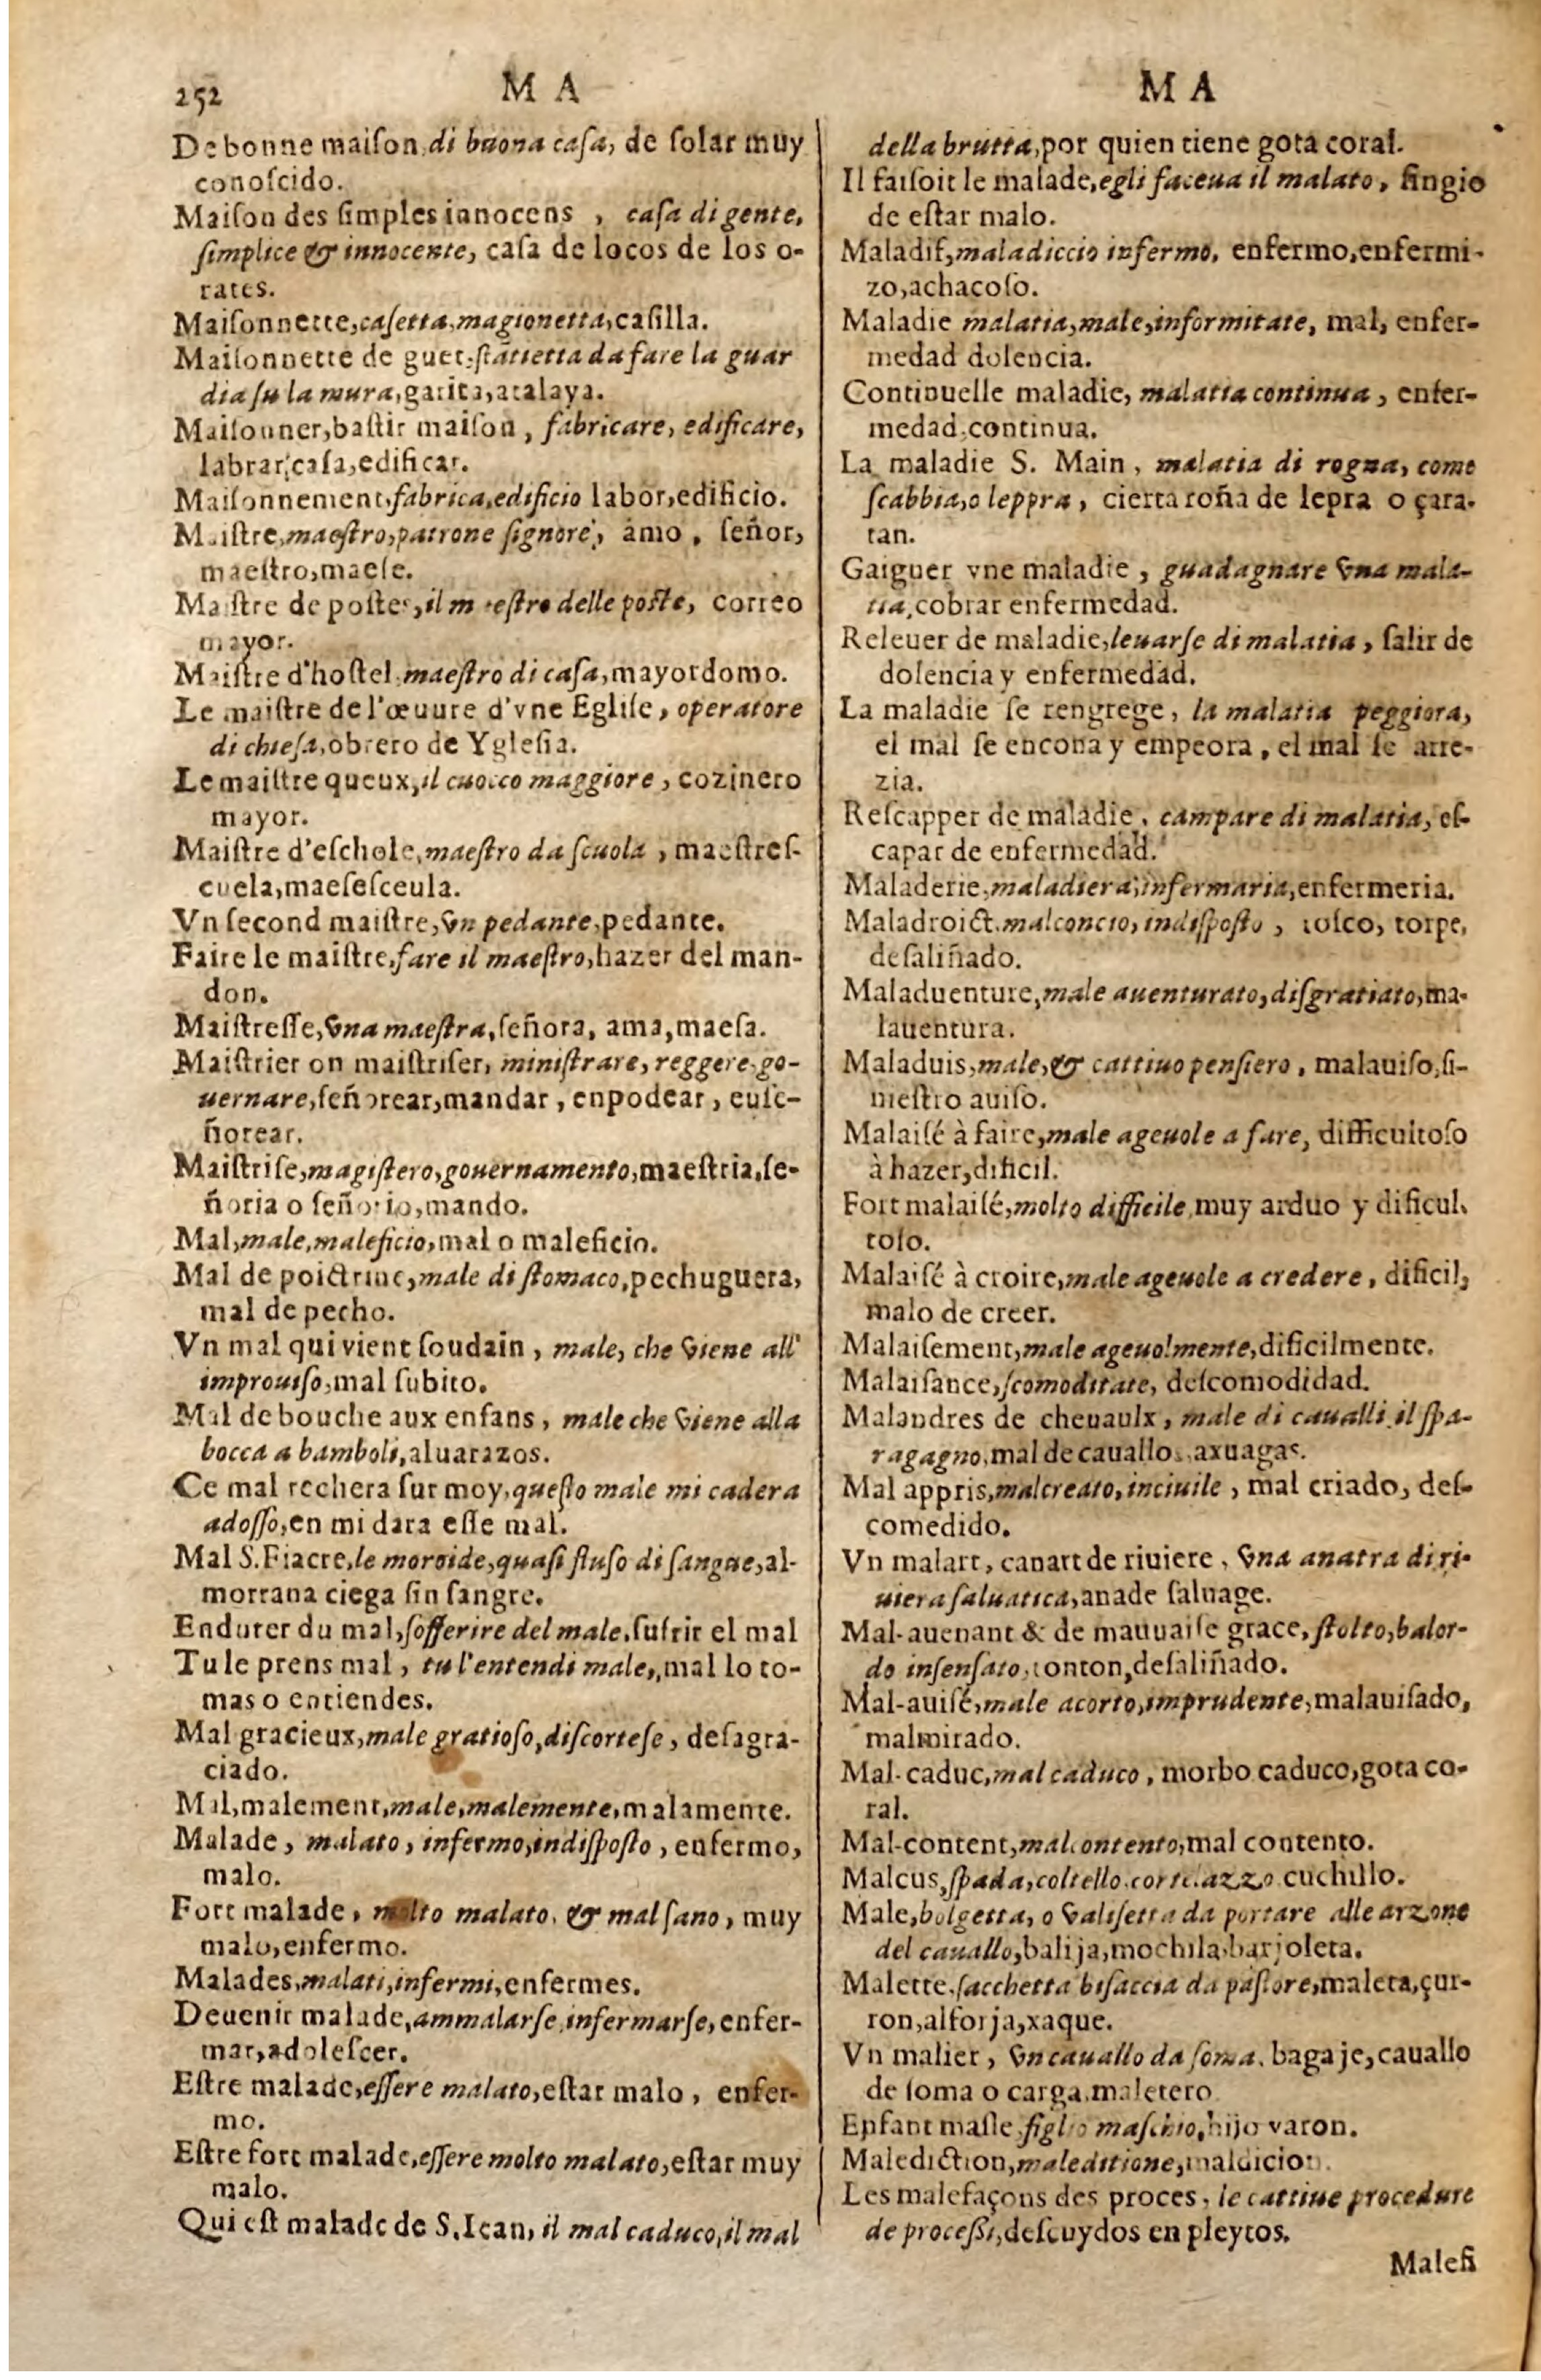 252
M A
De bonne maiſon, di buona caſa, de ſolar muy
conoſcido.
Maiſon des ſimples innocens , caſa di gente,
ſimplice & innocente, caſa de locos de los o-
rates.
Maiſonnette, caſetta, magionetta, caſilla.
Maiſonnette de guet, ſtātietta da fare la guar
dia ſu la mura, garita, atalaya.
Maiſonner, baſtir maiſon , fabricare, edificare,
labrar, caſa, edificar.
Maiſonnement, fabrica, edificio labor, edificio.
Maiſtre, maeſtro, patrone ſignore, amo , ſeñor,
maeſtro, maeſe.
Maiſtre de poſtes, il maeſtro delle poſte, correo
mayor.
Maiſtre d'hoſtel, maeſtro di caſa, mayordomo.
Le maiſtre de l'œuure d'vne Egliſe, operatore
di chieſa, obrero de Ygleſia.
Le maiſtre queux, il cuocco maggiore , cozinero
mayor.
Maiſtre d'eſchole, maeſtro da ſcuola , maeſtreſ-
cuela, maeſeſceula.
Vn ſecond maiſtre, vn pedante, pedante.
Faire le maiſtre, fare il maeſtro, hazer del man-
don.
Maiſtreſſe, vna maeſtra, ſeñora, ama, maeſa.
Maiſtrier on maiſtriſer, miniſtrare, reggere, go-
uernare, ſeñorear, mandar , enpodear , euſe-
ñorear.
Maiſtriſe, magiſtero, gouernamento, maeſtria, ſe-
ñoria o ſeñorio, mando.
Mal, male, maleficio, mal o maleficio.
Mal de poictrine, male di ſtomaco, pechuguera,
mal de pecho.
Vn mal qui vient ſoudain , male, che viene all'
improuiſo, mal ſubito.
Mal de bouche aux enfans , male che viene alla
bocca a bamboli, aluarazos.
Ce mal rechera ſur moy, queſto male mi cadera
adoſſo, en mi dara eſſe mal.
Mal S. Fiacre, le moroide, quaſi fluſo di ſangue, al-
morrana ciega ſin ſangre.
Endurer du mal, ſofferire del male, ſufrir el mal
Tu le prens mal , tu l'entendi male, mal lo to-
mas o entiendes.
Mal gracieux, male gratioſo, diſcorteſe , deſagra-
ciado.
Mal, malement, male, malemente, malamente.
Malade , malato , infermo, indiſpoſto , enfermo,
malo.
Fort malade , molto malato, & mal ſano , muy
malo, enfermo.
Malades, malati, infermi, enfermes.
Deuenir malade, ammalarſe, infermarſe, enfer-
mar, adoleſcer.
Eſtre malade, eſſere malato, eſtar malo , enfer-
mo.
Eſtre fort malade, eſſere molto malato, eſtar muy
malo.
Qui eſt malade de S. Iean, il mal caduco, il mal
M A
della brutta, por quien tiene gota coral.
Il faiſoit le malade, egli faceua il malato , fingio
de eſtar malo.
Maladif, maladiccio infermo, enfermo, enfermi-
zo, achacoſo.
Maladie malatia, male, informitate, mal, enfer-
medad dolencia.
Continuelle maladie, malatia continua , enfer-
medad, continua.
La maladie S. Main , malatia di rogna, come
ſcabbia, o leppra , cierta roña de lepra o çara-
tan.
Gaigner vne maladie , guadagnare vna mala-
tia, cobrar enfermedad.
Releuer de maladie, leuarſe di malatia , ſalir de
dolencia y enfermedad.
La maladie ſe rengrege, la malatia peggiora,
el mal ſe encona y empeora , el mal ſe arre-
zia.
Reſcapper de maladie , campare di malatia, eſ-
capar de enfermedad.
Maladerie, maladiera, infermaria, enfermeria.
Maladroict, malconcio, indiſpoſto , toſco, torpe,
deſaliñado.
Maladuenture, male auenturato, diſgratiato, ma-
lauentura.
Maladuis, male, & cattiuo penſiero , malauiſo, ſi-
nieſtro auiſo.
Malaiſé à faire, male ageuole a fare, difficultoſo
à hazer, dificil.
Fort malaiſé, molto difficile, muy arduo y dificul-
toſo.
Malaiſé à croire, male ageuole a credere , dificil,
malo de creer.
Malaiſement, male ageuolmente, dificilmente.
Malaiſance, ſcomoditate, deſcomodidad.
Malandres de cheuaulx , male di caualli, il ſpa-
ragagno, mal de cauallo, axuagas.
Mal appris, malcreato, inciuile , mal criado, deſ-
comedido.
Vn malart, canart de riuiere , vna anatra di ri-
uiera ſaluatica, anade ſaluage.
Mal-auenant & de mauuaiſe grace, ſtolto, balor-
do inſenſato, tonton, deſaliñado.
Mal-auiſé, male acorto, imprudente, malauiſado,
malmirado.
Mal-caduc, mal caduco , morbo caduco, gota co-
ral.
Mal-content, malcontento, mal contento.
Malcus, ſpada, coltello, cortelazzo cuchillo.
Male, bolgetta, o valiſetta da portare alle arzone
del cauallo, balija, mochila, barjoleta.
Malette, ſacchetta biſaccia da paſtore, maleta, çur-
ron, alforja, xaque.
Vn malier , vn cauallo da ſoma, bagaje, cauallo
de ſoma o carga, maletero
Enfant maſle, figlio maſchio, hijo varon.
Malediction, maleditione, maldicion.
Les malefaçons des proces , le cattiue procedure
de proceſſi, deſcuydos en pleytos.
Malefi